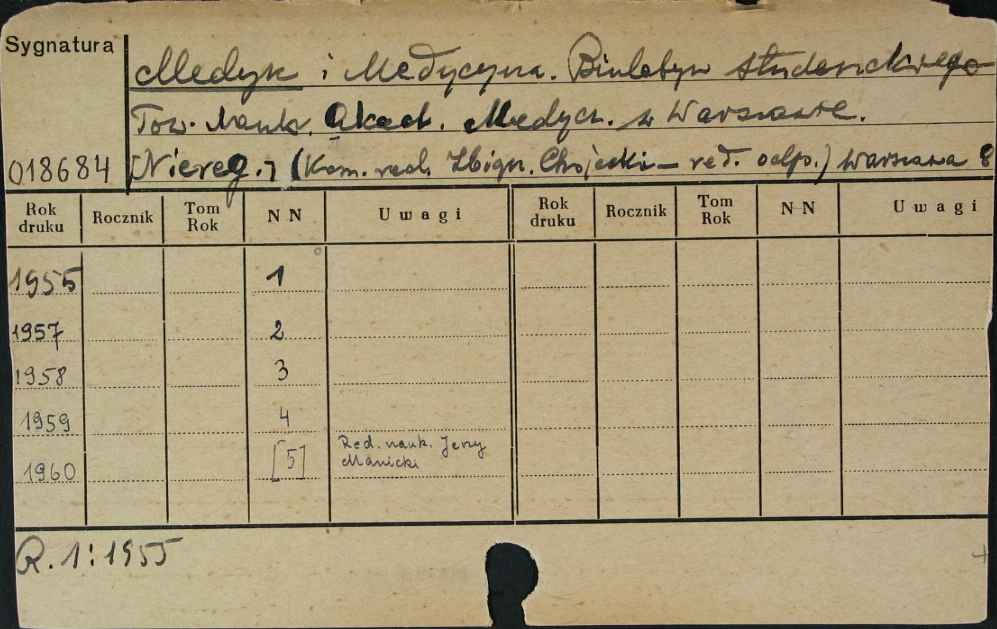 Sygnatura
Medyk i Medycyna. Biuletyn studenckiego
Tow. Nauk. Akad. Medycz. w Warszawie.
018684 [Niereg.] (Kom. red. Zbign. Chojecki – red. odp.) Warszawa 8
Rok druku Rocznik Tom Rok NN Uwagi Rok druku Rocznik Tom Rok NN Uwagi
1955 1
1957 2
1958 3
1959 4
1960 [5] Red. nauk. Jerzy
Manicki
R. 1: 1955